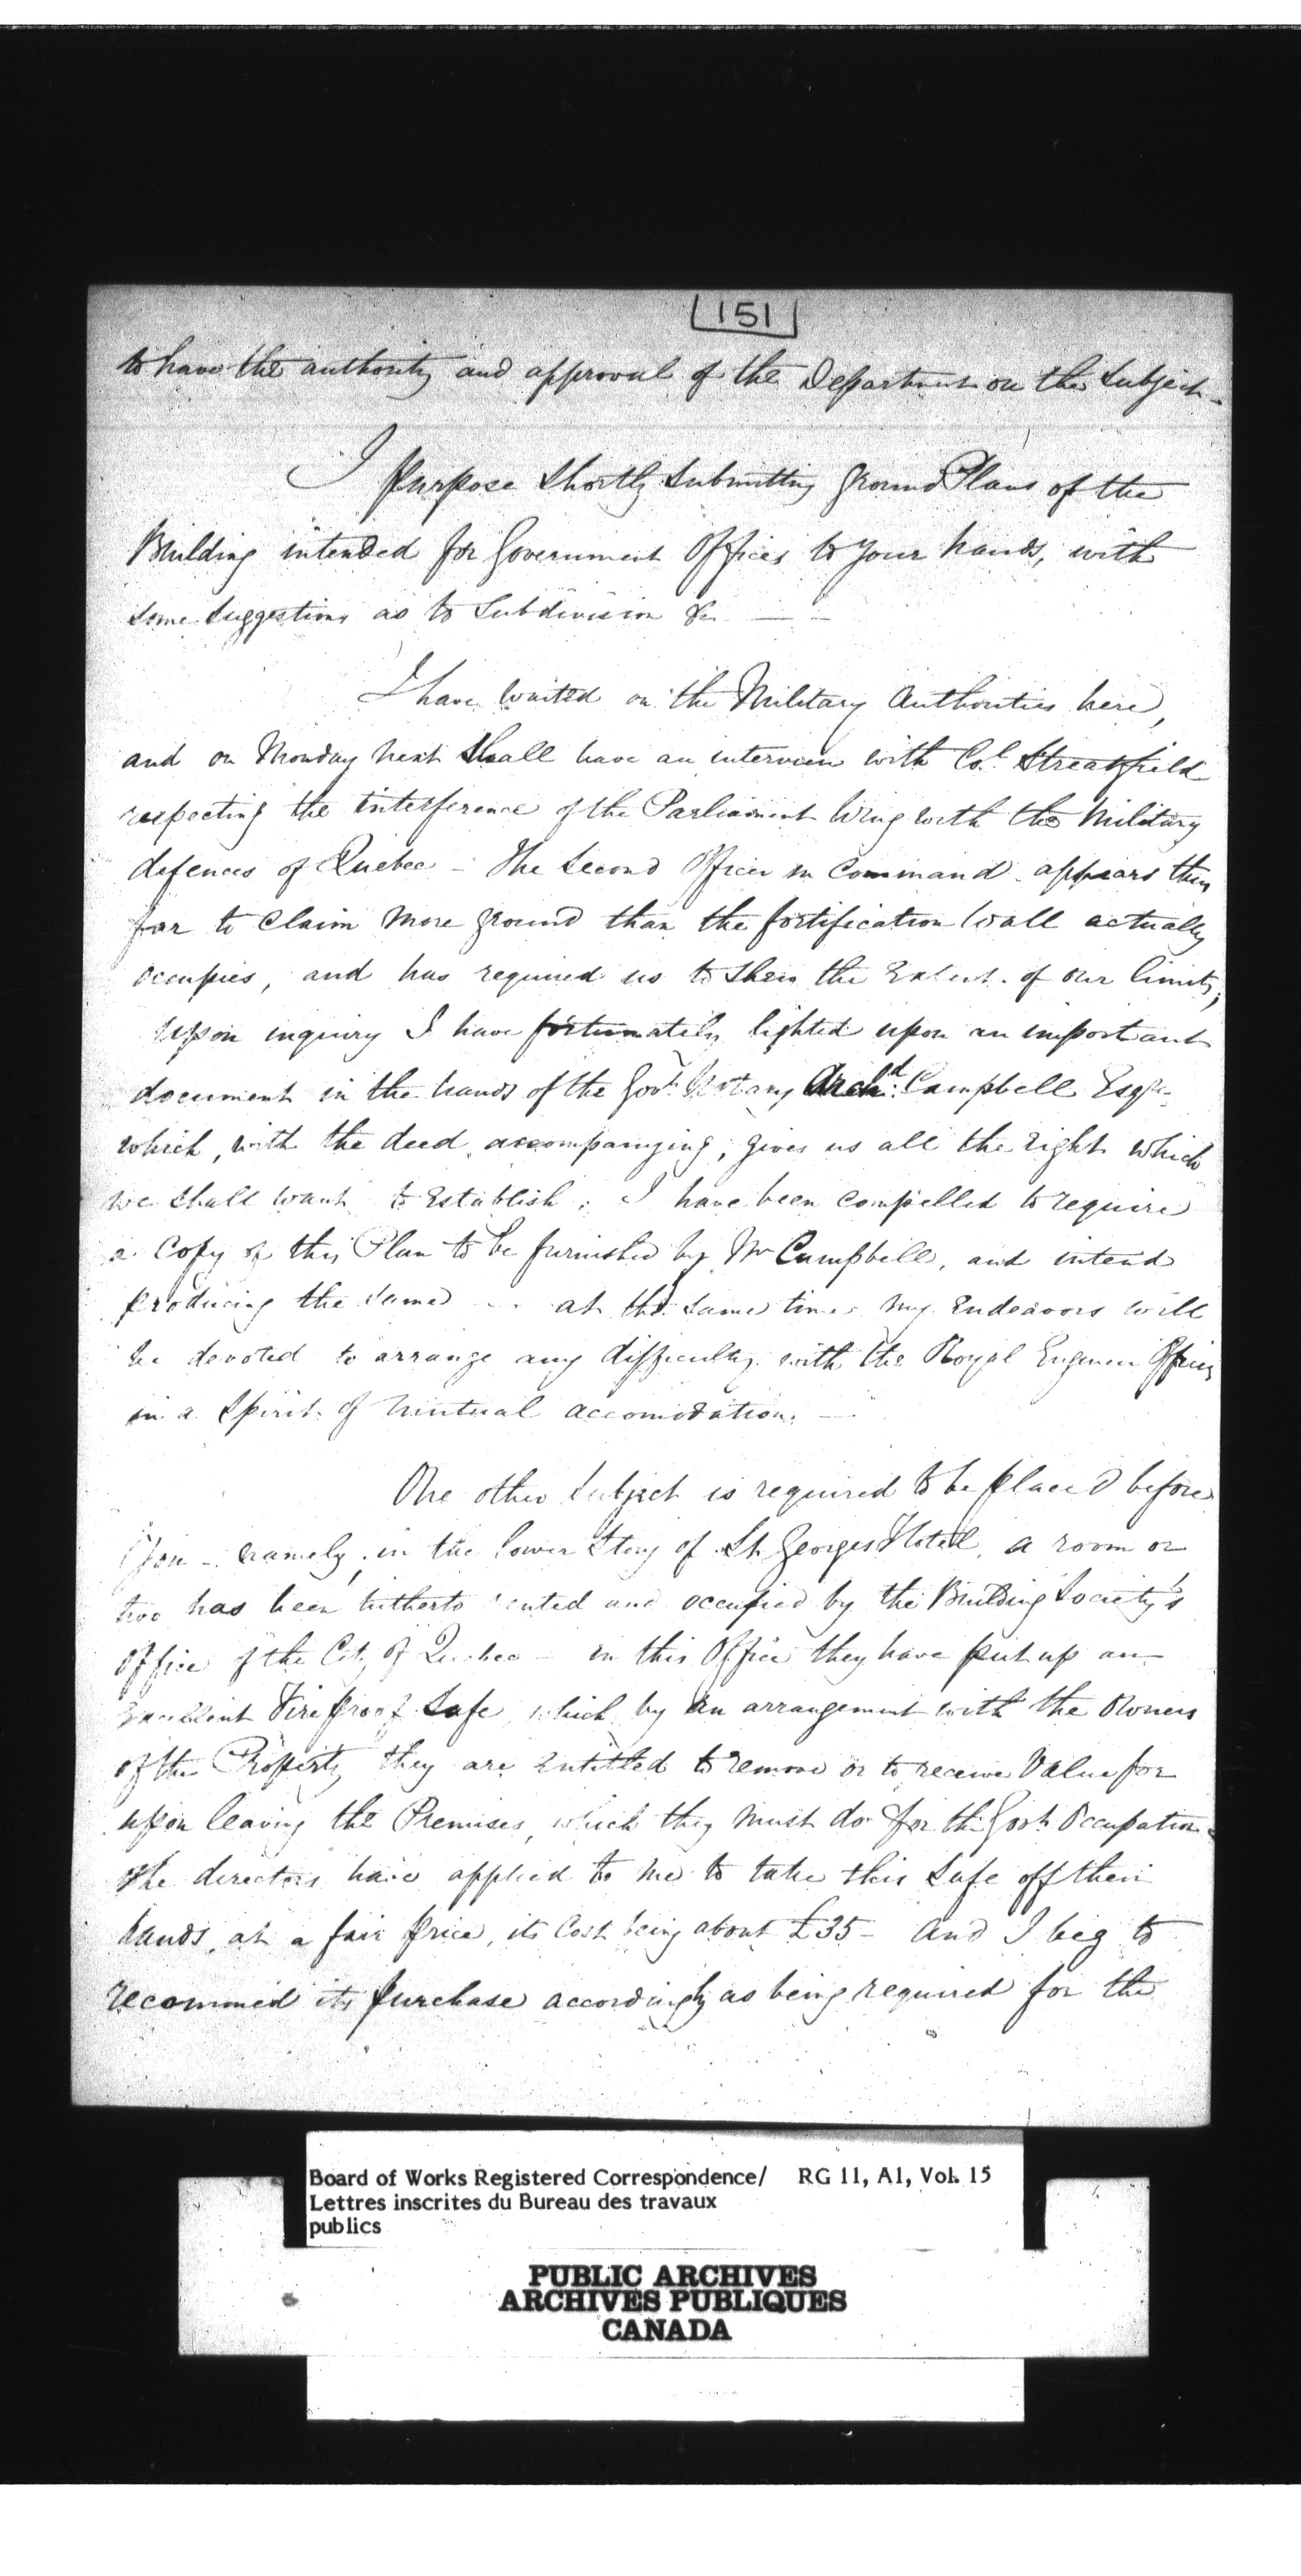 151
to have the authority and approval of the Department on the Subject.
I purpose Shortly Submitting Ground Plans of the
Building intended for Government Offices to your hands, with
some Suggestions as to Subdivision &c — —
I have waited on the Military Authorities here,
and on Monday next Shall have an interview with Col. Streatfield
respecting the interference of the Parliament Wing with the Military
defences of Quebec – The Second Officer in Command appears thus
far to claim more ground than the fortification Wall actually
occupies, and has required us to Shew the Extent of our limits;
Upon inquiry I have fortunately lighted upon an important
document in the hands of the Govt. Notary Archd. Campbell Esqre.
which, with the deed accompanying, gives us all the right which
we Shall want to Establish; I have been compelled to require
a Copy of this Plan to be furnished by Mr Campbell, and intend
producing the Same – at the same time my Endeavors will
be devoted to arrange any difficulty with the Royal Engineer Officers
in a Spirit of mutual accomodation. —
One other Subject is required to be placed before
You – namely, in the lower Story of St. Georges Hotel, a room or
two has been hitherto rented and occupied by the Building Society's
Office of the City of Quebec – in this Office they have put up an
Excellent Fire proof Safe which by an arrangement with the Owners
of the Property they are Entitled to remove or to receive Value for
upon leaving the Premises, which they must do for the Govt. Occupation.
The directors have applied to me to take this Safe off their
hands, at a fair price, its Cost being about £35 – And I beg to
recommed its purchase accordingly as being required for the
Board of Works Registered Correspondence/ RG 11, A1, Vol. 15
Lettres inscrites du Bureau des travaux
publics
PUBLIC ARCHIVES
ARCHIVES PUBLIQUES
CANADA